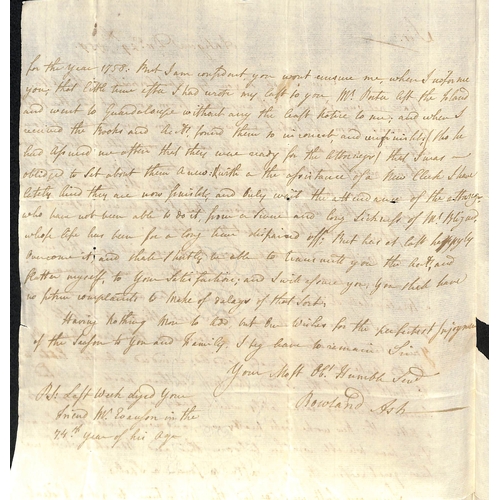 for the year 1758. But I am confident you wont censure me, when I inform
you, that little time after I had wrote my last to you Mr. Porter left the Island
and went to Guardaloupe without any the least notice to me; and when I
received the Books and Acctts. found them so incorrect, and unfinished, (tho he
had assured me often that they were ready for the Attorneys) that I was
obliged to set about them anew, with the assistance of a New Clerk I have
lately, And they are now finish'd, and Only wait the attendance of the attorneys
who have not been able to do it, from a severe and long Sickness of Mr. Blizard
whose life has been for a long time dispaired off. But has at last happyly
Overcome it; and shall shortly be able to transmitt you the Acctts. and
flatter myself, to Your Satisfaction; and I will assure you, You shall have
no further complaints to make of delays of that Sort.
Having nothing More to add but Our Wishes for the perfectest Enjoyment
of the Season to You and Family. I beg leave to remain Sir
Your Most Obt. Humble Servt.
Rowland Ash
P.S. Last Week dyed Your
friend Mr. Evanson in the
74th. year of his Age